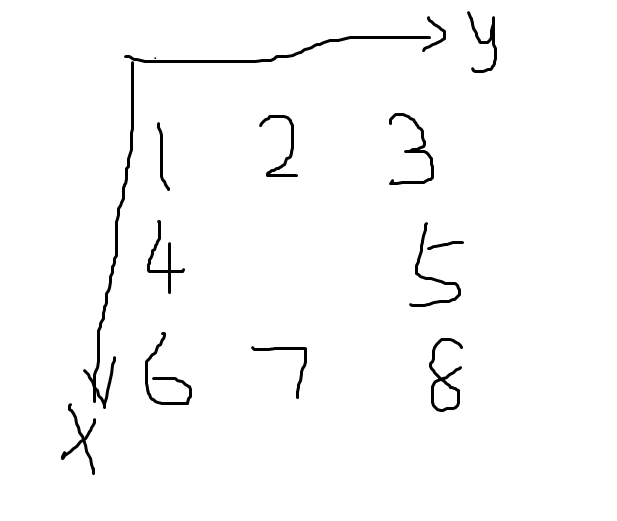 y
1 2 3
4 5
6 7 8
x